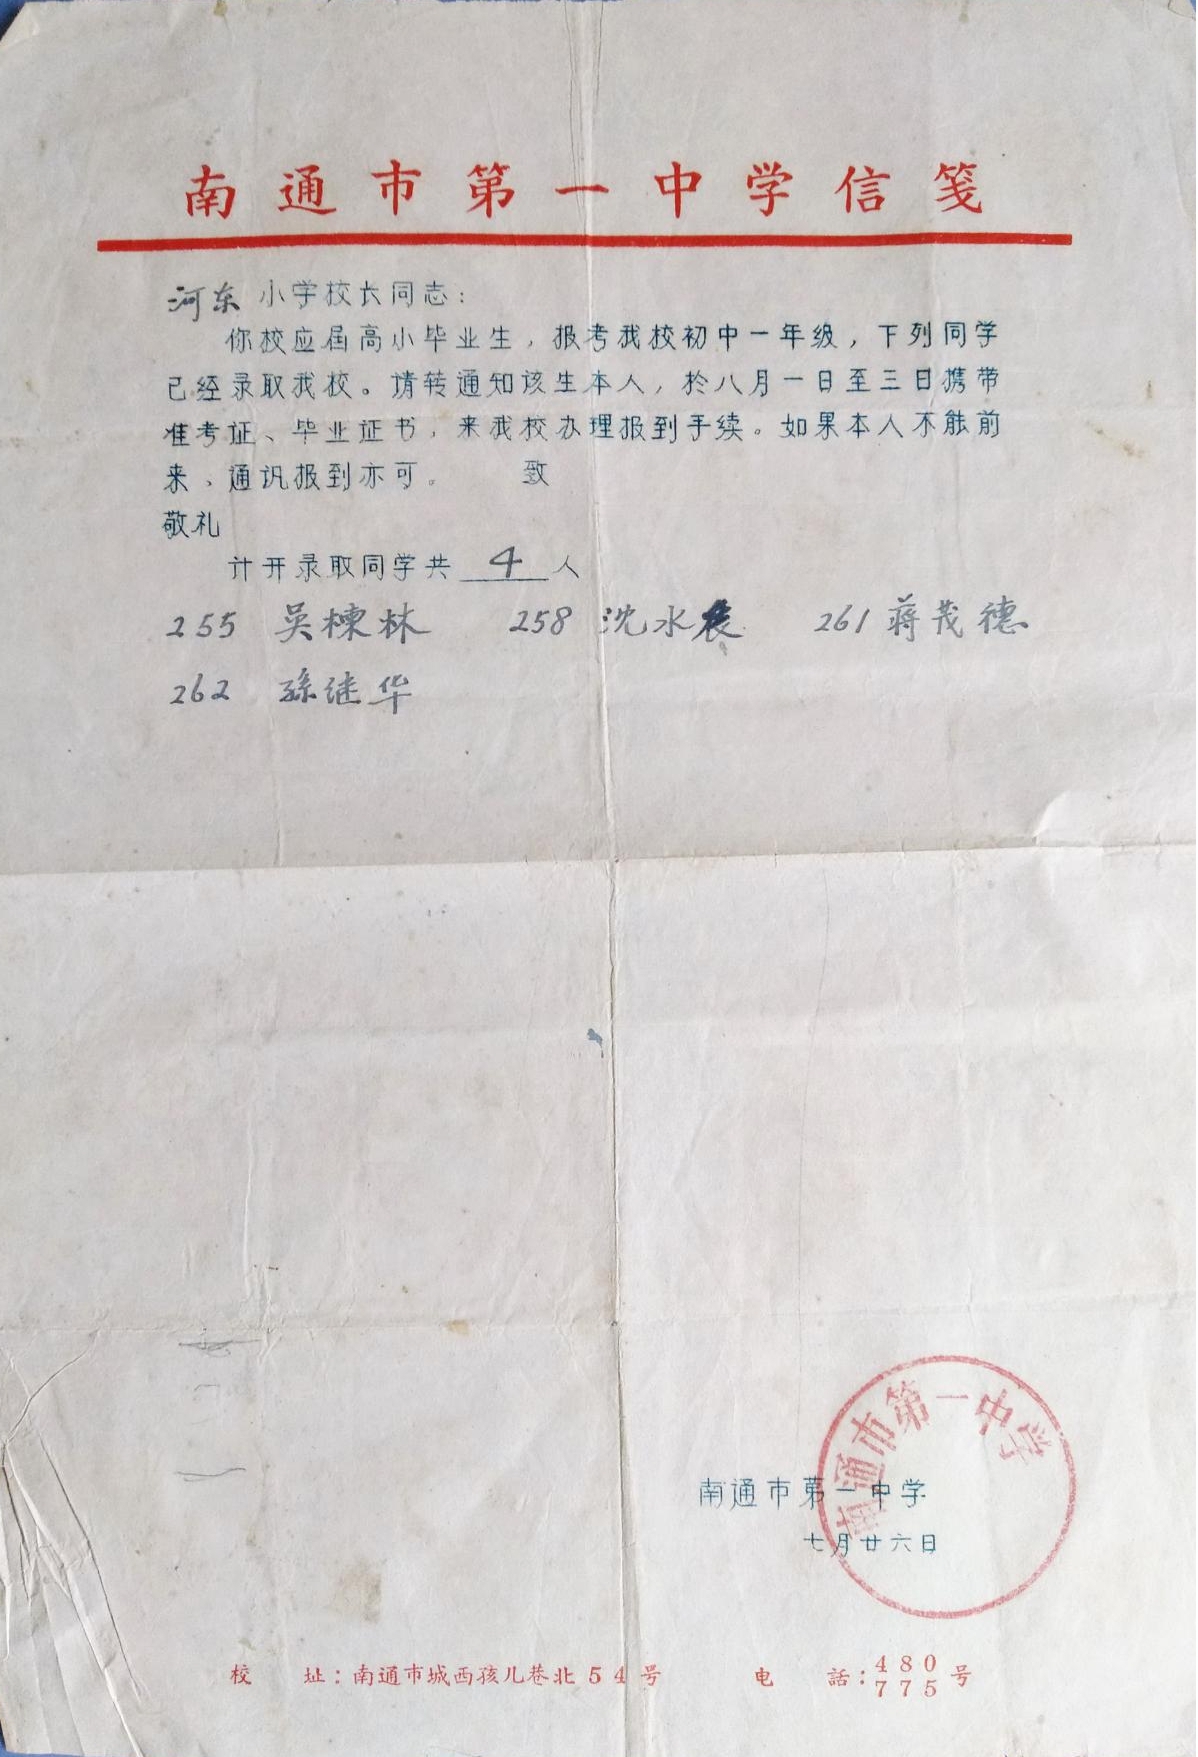 南通市第一中学信笺
河东小学校长同志：
你校应届高小毕业生，报考我校初中一年级，下列同学
已经录取我校。请转通知该生本人，於八月一日至三日携带
准考证、毕业证书，来我校办理报到手续。如果本人不能前
来、通讯报到亦可。 致
敬礼
计开录取同学共 4 人
255 吴栋林 258 沈水 261 蒋茂德
262 孙继华
南通市第一中学
南通市第一中学
七月廿六日
校 址：南通市城西孩儿巷北54号 电 話：480 775 号